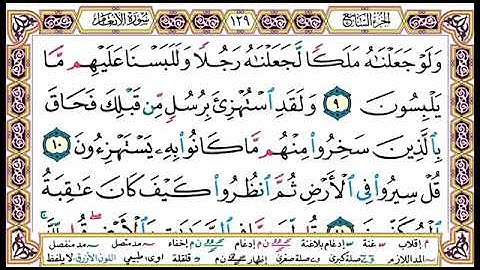 الجزء السابع ١٢٩ سورة الأنعام
وَلَوْ جَعَلْنَٰهُ مَلَكًا لَّجَعَلْنَٰهُ رَجُلًا وَلَلَبَسْنَا عَلَيْهِم مَّا
يَلْبِسُونَ ٩ وَلَقَدِ ٱسْتُهْزِئَ بِرُسُلٍ مِّن قَبْلِكَ فَحَاقَ
بِٱلَّذِينَ سَخِرُوا۟ مِنْهُم مَّا كَانُوا۟ بِهِۦ يَسْتَهْزِءُونَ ١٠
قُلْ سِيرُوا۟ فِى ٱلْأَرْضِ ثُمَّ ٱنظُرُوا۟ كَيْفَ كَانَ عَٰقِبَةُ
م إقلاب غنة إدغام بلاغنة ن م إدغام ن م إخفاء مد متصل مد منفصل
المد اللازم صلة كبرى وصلة صغرى إظهار ن م قلقلة مد طبيعي اللون الأزرق لا يلفظ